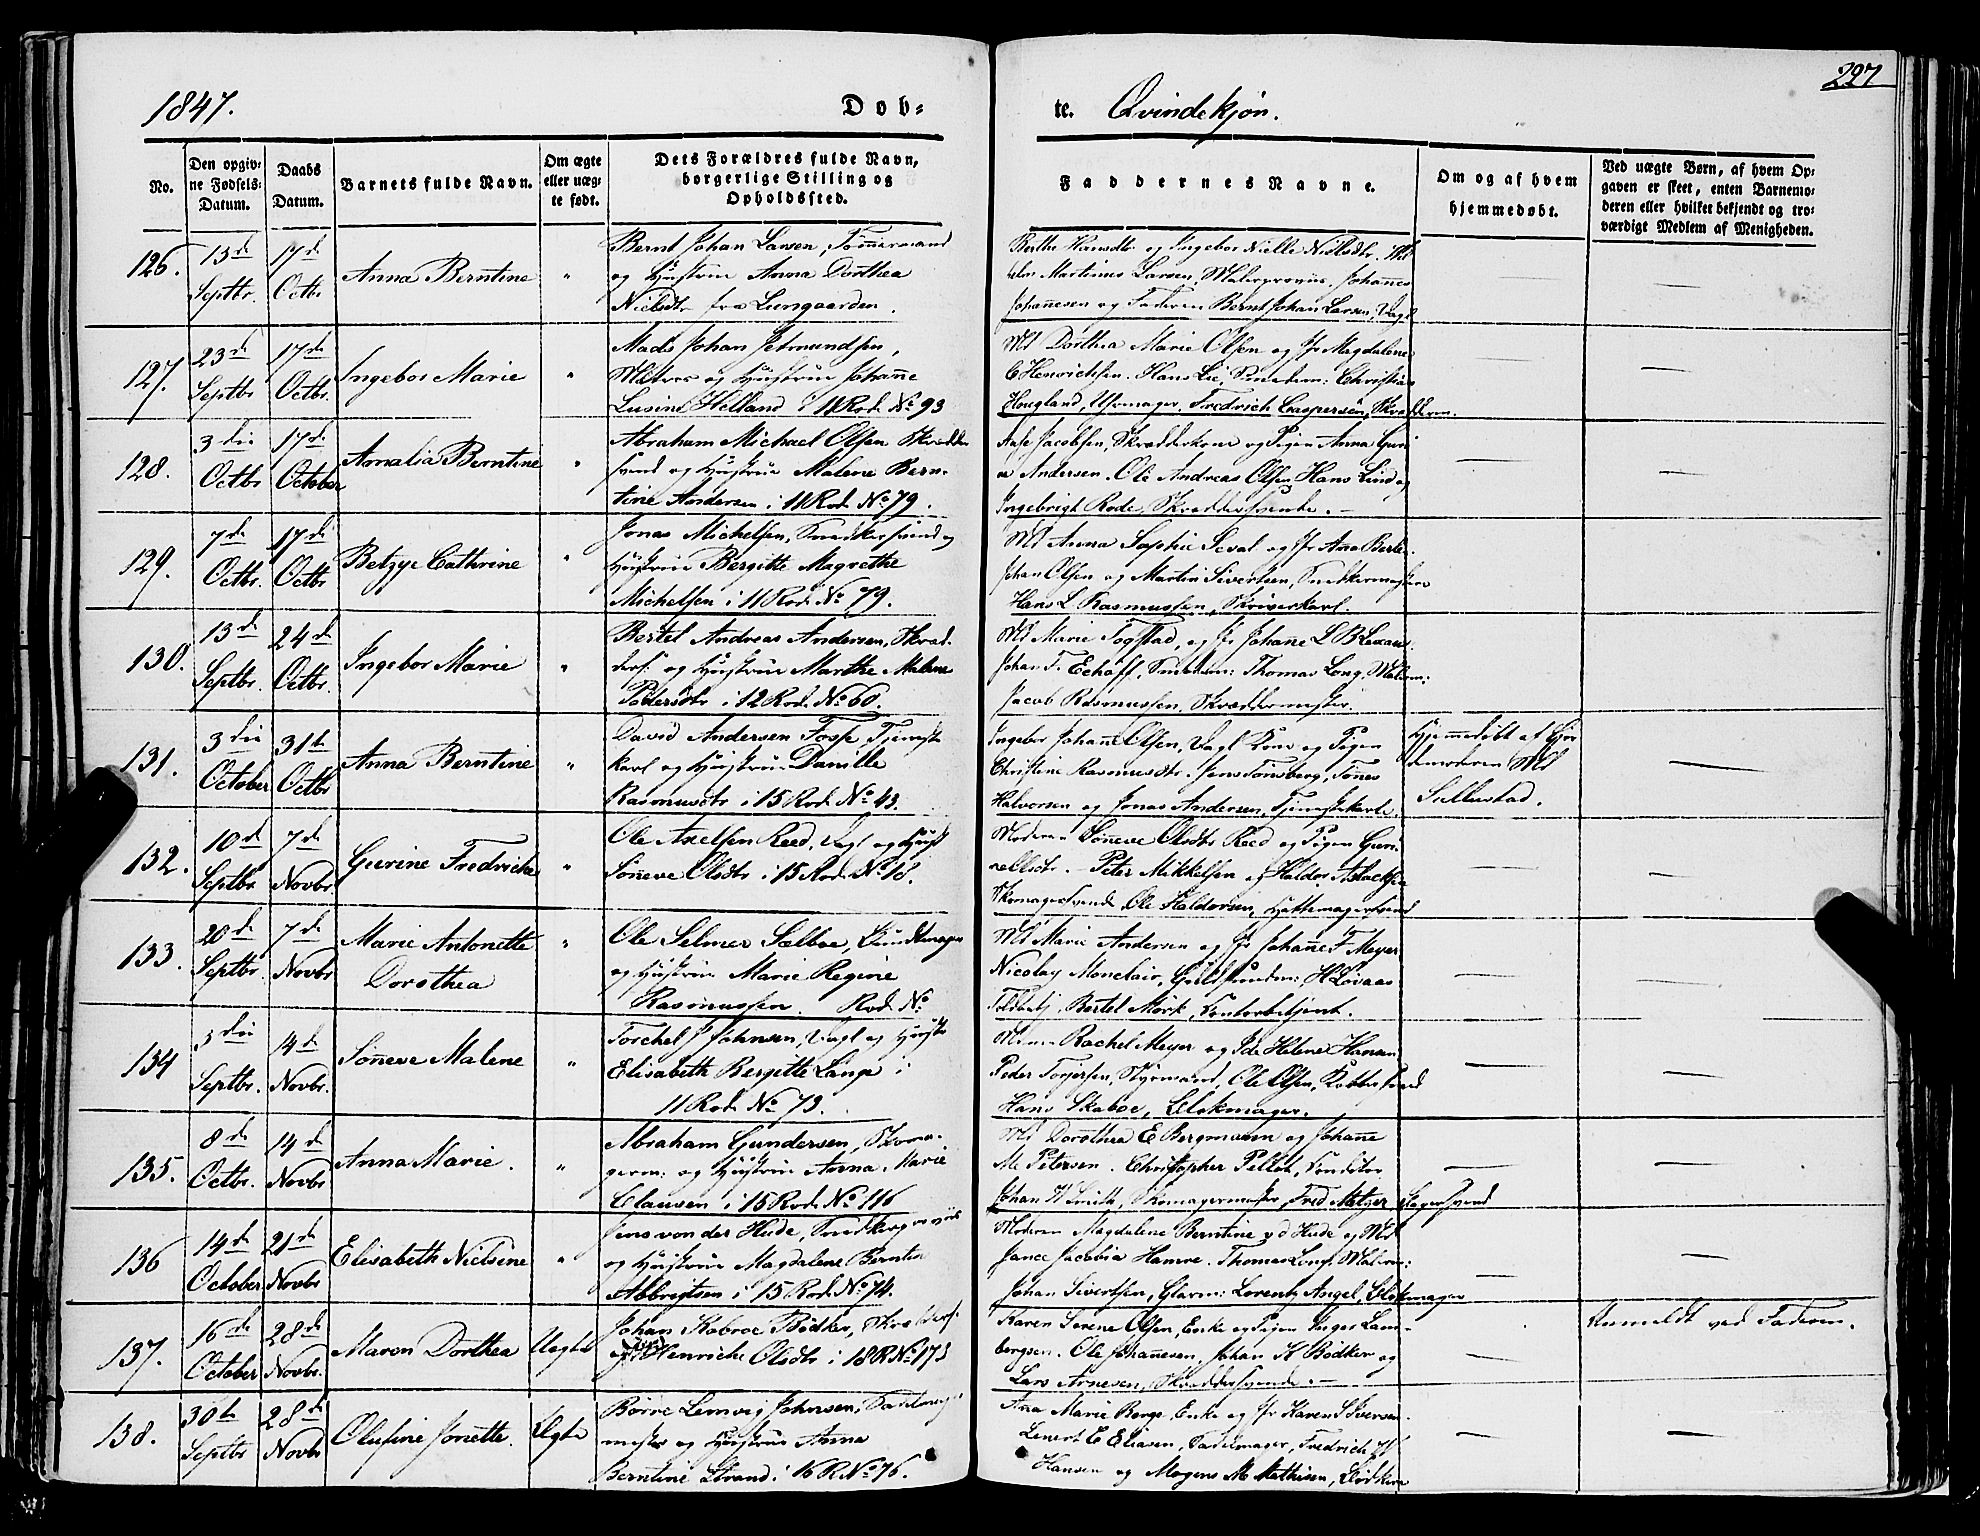 227
1847.
Døb-
te. Qvindekjøn.
No.
Den opgiv-
ne Fødsels-
Datum.
Daabs
Datum.
Barnets fulde Navn.
Om ægte
eller uæg-
te født.
Dets Forældres fulde Navn,
borgerlige Stilling og
Opholdssted.
Faddernes Navne.
Om og af hvem
hjemmedøbt.
Ved uægte Børn, af hvem Op-
gaven er skeet, enten Barnemo-
deren eller hvilket bekjendt og tro-
værdigt Medlem af Menigheden.
126.
13de
Septbr.
17de
Octbr
Anna Berntine
"
Bernt Johan Larsen, Tømmermand
og Hustrue Anna Dorthea
Nielsdtr fra Lungaarden.
Berthe Hansdtr og Ingebor Nielle Nielsdtr.
Martinus Larsen, Johannes
Johannesen og Faderen Bernt Johan Larsen, Vægt
127.
23de
Septbr
17de
Octbr.
Ingebor Marie
"
Mads Johan Jetmundsen,
og Hustrue Johanne
Lusine Helland i 11 Rod. No 93
Md Dorthea Marie Olsen og Jfr Magdalene
C Henrichsen. Hans Lie, Smedem: Christian
Hougland, Uhrmager. Fredrich Caspersen, Skrædderm.
128.
3die
Octbr
17de
October
Amalia Berntine
"
Abraham Michael Olsen Skrædder
svend og Hustrue Malene Bern-
tine Andersen i 11 Rod. No 79.
Aase Jacobsen, Skrædderkone og Pigen Anna Guri
ne Andersen. Ole Andreas Olsen, Hans Lind og
Ingebrigt Rode, Skræddersvende.
129.
7de
Octbr.
17de
Octbr
Betzye Cathrine
"
Jonas Michelsen, Snedkersvend og
Hustrue Bergitte Magrethe
Michelsen i 11 Rod. No 79.
Md Anna Sophie Seval og Jfr Ana Berle.
Johan Olsen og Martin Sivertsen, Snedkermestere
Hans L Rasmussen, Skriverkarl.
130.
13de
Septbr.
24de
Octbr.
Ingebor Marie
"
Bertel Andreas Andersen, Skræd-
ders: og Hustrue Marthe Malene
Pedersdtr i 12 Rod. No 60.
Md Marie Fogstad, og Jfr Johanne L B Lexau.
Johan F. Echoff, Smedem: Thomas Long, Malerm:
Jacob Rasmussen, Skræddermester.
131.
3die
October
31te
Octbr
Anna Berntine
"
David Andersen Fosse, Tjeneste
karl og Hustrue Danille
Rasmusdtr i 15 Rod. No 43.
Ingebor Johanne Olsen, Vægt. Kone og Pigen
Christine Rasmusdtr. Jens Tønsberg, Tønes
Halvorsen og Jonas Andersen, Tjenestekarle.
Hjemmedøbt af Jor
demoderen Md
Sullustad.
132.
10de
Septbr
7de
Novbr.
Gurine Fredrikke
"
Ole Axelsen Reed, Vægt. og Hust
Sønneve Olsdtr i 15 Rod. No 18.
Moderen Sønneve Olsdtr Reed og Pigen Guri
Nellsdtr. Peter Mikkelsen og Haldor Aslacksen
Skomagersvende. Ole Haldorsen, Hattemagersvend
133.
20de
Septbr.
7de
Novbr
Marie Antonette
Dorothea
"
Ole Selmer Sælboe, Bundtmager
og Hustrue Marie Regine
Rasmussen. Rod. No
Md Marie Andersen og Jfr Johanne F Meyer
Nicolay Monclair, Guldsmedm: H Løvaas
Toldbetj, Bertel Mörk, Contorbetjent.
134
3die
Septbr.
14de
Novbr.
Sønneve Malene
"
Torchel J Johnsen, Vægt og Hustr
Elisabeth Bergitte Lange i
11 Rod. No 73.
Rachel Meyer og Ide Helene Hansen
Peder Torjersen, Styrmand, Ole Olsen, Kobbersvend
Hans Skaboe, Blokmager.
135.
8de
Octbr.
14de
Novbr
Anna Marie.
"
Abraham Gundersen, Skoma-
germ: og Hustrue Anna Marie
Clausen i 15 Rod. No 116
Md Dorothea E Bergmann og Johanne
Me Petersen. Christopher Peltet, Conditor
Johan W Smith, Skomagermester, Fred Metzer Slagersvend
136
14de
October
21de
Novbr
Elisabeth Nielsine
"
Jens von der Hude, Snedkergrovsv
og Hustrue Magdalene Berntin
Abbrigtsen i 15 Rod. No 74.
Moderen Magdalene Berntine v d Hude og Md
Jance Jacobia Hamre. Thomas Long, Malerm:
Johan Sivertsen, Glarm: Lorentz Angel, Blokmager
137.
16de
October
28de
Novbr.
Maren Dorthea
Uægte
Johan Kobroe Bødker, Skrædders:
og Henrikke Olsdtr i 18 R No 173
Karen Serene Olsen, Enke og Pigen Inger Lam-
bergsen. Ole Johannesen, Johan K Bødker og
Lars Arnesen, Skræddersvende.
Anmeldt ved Faderen.
138.
30te
Septbr
28de
Novbr
Olufine Jonette.
Ægte
Børre Lemvig Johnsen, Sadelmager
mester og Hustrue Anna
Berntine Strand i 16 R No 76.
Ana Marie Berge, Enke og Jfr Karen S Iversen.
Lenert C Eliasen, Sadelmager, Fredrich W
Hansen og Mogens M Mathisen, Bødkere